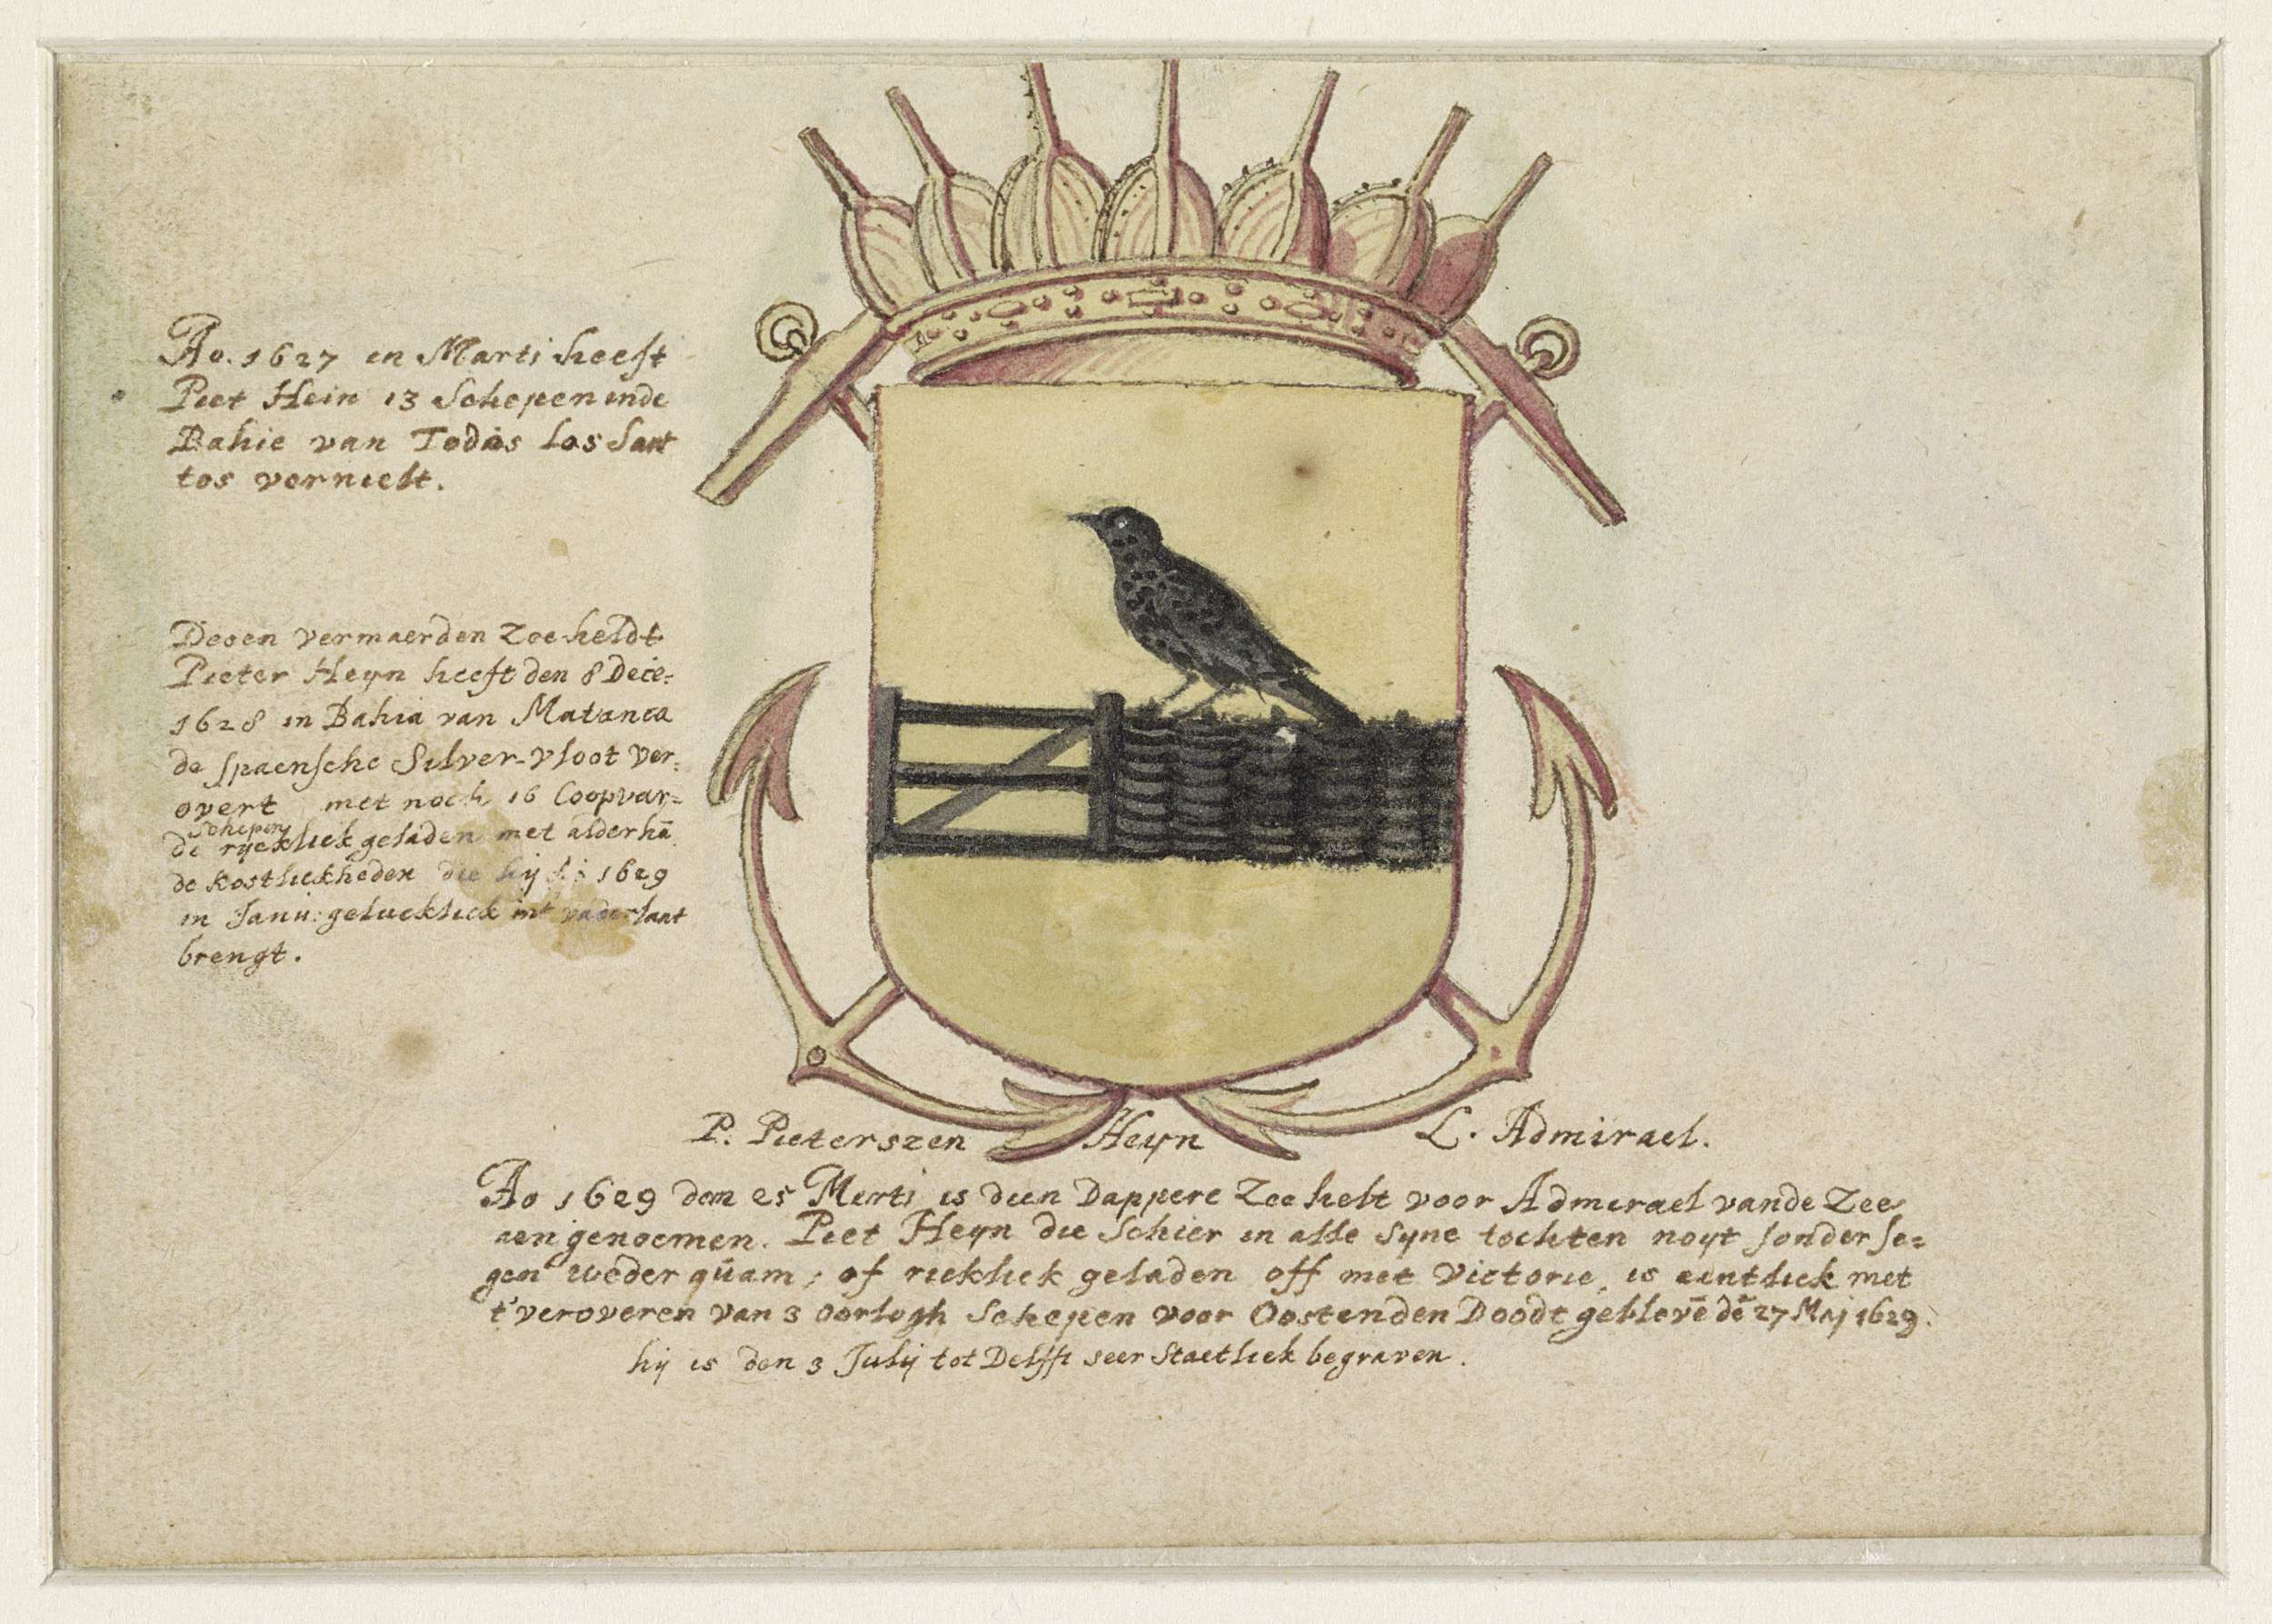 Ao. 1627 in Marti heeft
Piet Hein 13 Schepen inde
Bahie van Todos los San
tos vernielt.
Desen vermaerden Zee heldt
Pieter Heyn heeft den 8 Dece=
1628 in Bahia van Matanca
de spaensche Silver-vloot ver=
overt met noch 16 Coopvar=
Schepen
de rijckliek geladen met alderhā
de kostlickheden die hij 1629
in Janu: gelucklick int vaderlant
brengt.
P. Pieterszen Heyn L. Admirael.
Ao 1629 den 25 Merti is dien Dappere Zee helt voor Admirael vande Zee
aen genoemen. Piet Heyn die Schier in alle Syne tochten noyt sonder se=
gen weder quam; of ricklick geladen off met Victorie, is eintlick met
t'veroveren van 3 Oorlogh Schepen voor Oostenden Doodt geblevē dē 27 Maj 1629.
hij is den 3 Julij tot Delfft seer Staetliek begraven.